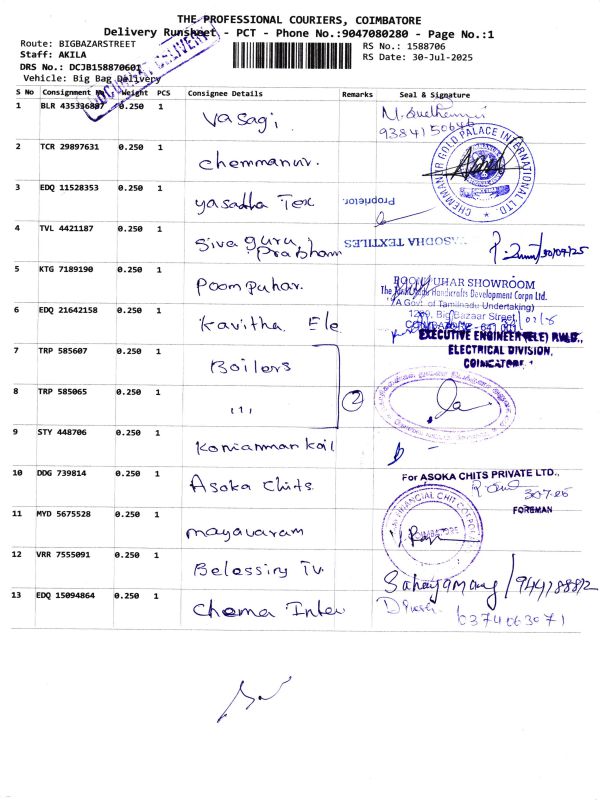 THE PROFESSIONAL COURIERS, COIMBATORE
Delivery Runsheet - PCT - Phone No.:9047080280 - Page No.:1
Route: BIGBAZARSTREET
Staff: AKILA
DRS No.: DCJB158870601
Vehicle: Big Bag Delivery
RS No.: 1588706
RS Date: 30-Jul-2025
DOCUMENT DELIVERY
S No Consignment Weight PCS Consignee Details Remarks Seal & Signature
1 BLR 0.250 1 Vasagi
9384150646
2 TCR 29897631 0.250 1 Chemmanur.
CHEMMANUR GOLD PALACE INTERNATIONAL LTD.
3 EDQ 11528353 0.250 1 yasadha Tex
Proprietor.
YASODHA TEXTILES
4 TVL 4421187 0.250 1 Siva guru Prabham
30/07/25
5 KTG 7189190 0.250 1 Poompuhar.
POOMPUHAR SHOWROOM
The Tamilnadu Handicrafts Development Corpn Ltd.
(A Govt. of Tamilnadu Undertaking)
Big Bazaar Street,
COIMBATORE - 641 001
6 EDQ 21642158 0.250 1 Kavitha Ele
EXECUTIVE ENGINEER (ELE)
ELECTRICAL DIVISION,
COIMBATORE
7 TRP 585607 0.250 1 Boilers
8 TRP 585065 0.250 1 ,,, 2
9 STY 448706 0.250 1 Konianman Koil
10 DDG 739814 0.250 1 Asoka Chits
For ASOKA CHITS PRIVATE LTD.,
FOREMAN
11 MYD 5675528 0.250 1 mayavaram
FINANCIAL CHIT CORPORATION
COIMBATORE
12 VRR 7555091 0.250 1 Belessing Tv.
13 EDQ 15094864 0.250 1 Chema Inter